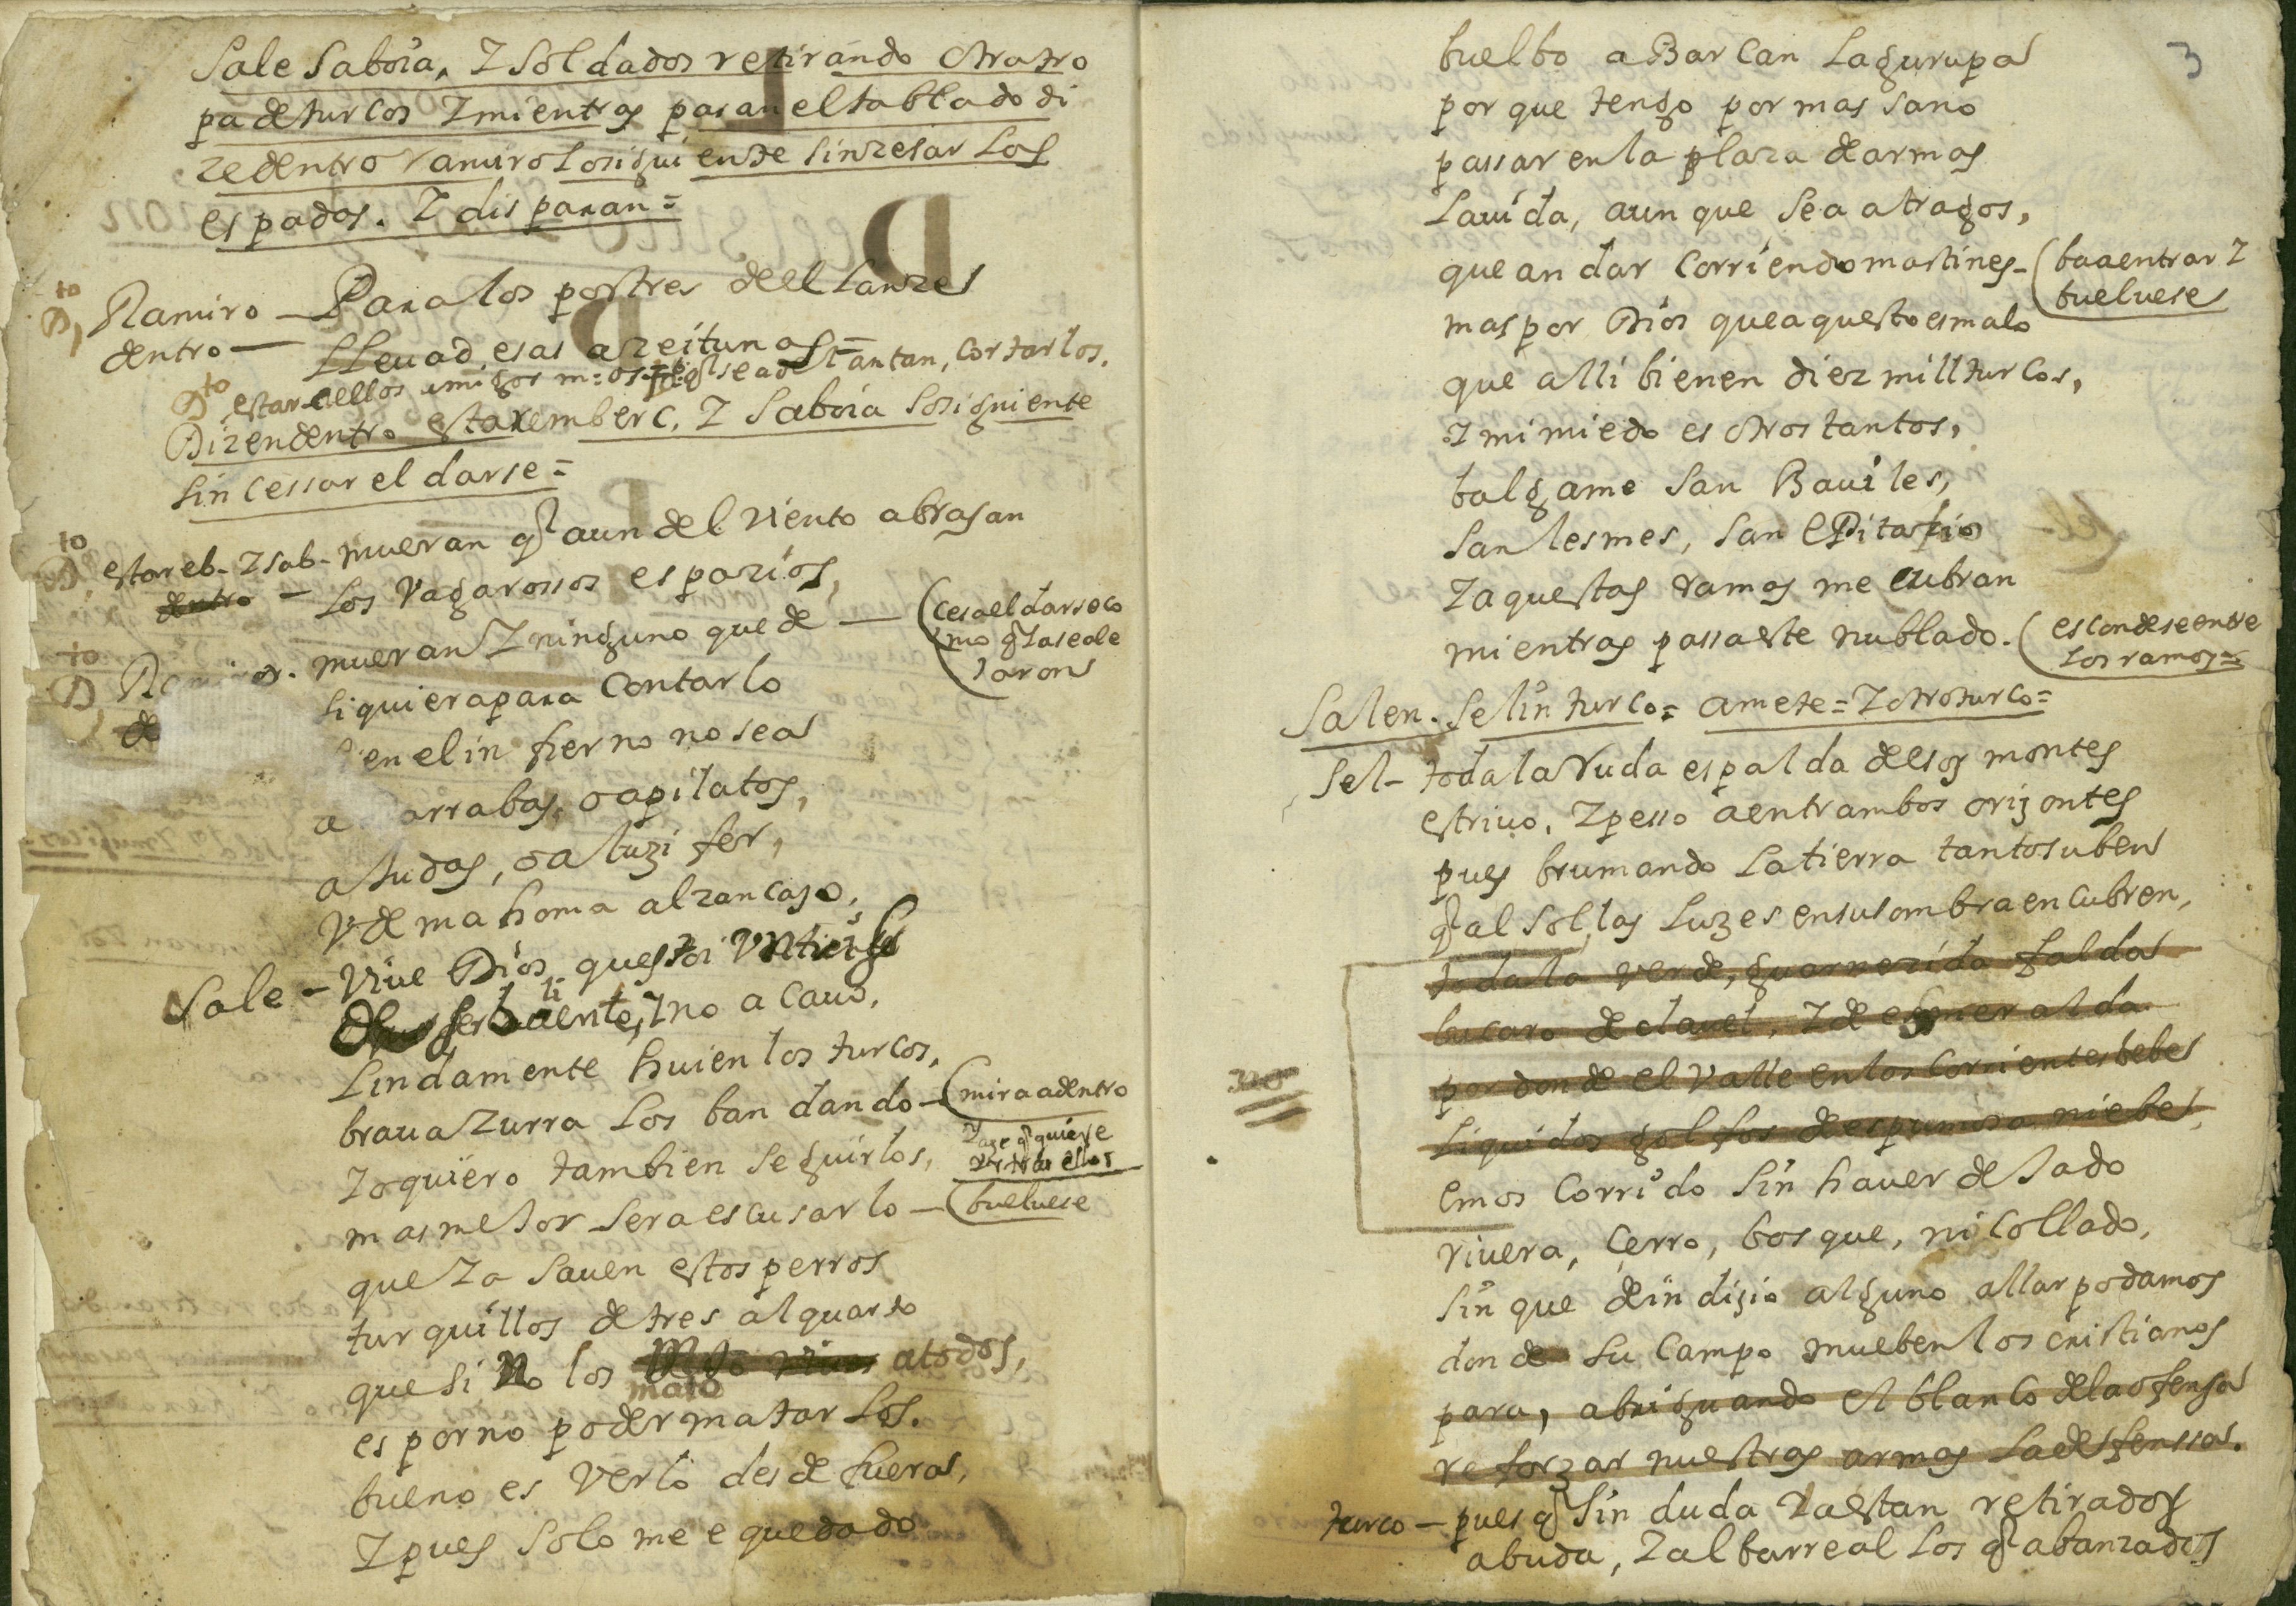 Sale Saboia, Z Soldados retirando otra tro
pa de turcos Z mientras pasan el tablado di
ze dentro ramiro lo siguiente sin zesar las
espadas. Z disparan=
Dto Ramiro — Para los postres de el lanze
dentro — LLevad esas azeitunas=
Dto estar aellos amigos mios tantan, Cortarlos.
Dizen dentro estaremberc, Z Saboia lo siguiente
sin cessar el darse=
Dto estareb- Z sab- mueran q aun del viento abrasan
dentro — los vagarossos espazios,
mueran Z ninguno quede — (cesa el darse co
mo q Ja se ale
Jaron
Dto
de
siquiera para Contarlo
en el infierno no sea
a arrabas, o a pilatos,
a Judas, o a luzifer,
V de mahoma al zancajo,
Sale — Vive Dios que stoi
serbiente, Z no a Cavo,
Lindamente huien los turcos,
braua Zurra los ban dando — (mira adentro
Zo quiero tambien seguirlos, Zaze q quiere
ir tras ellos
mas meJor sera escusarlo — (bueluese
que Za Sauen estos perros
turquillos de tres al quarto
que si No los mato atodos,
es por no poder matarlos.
bueno es Verlo desde fuera,
Z pues Solo me e quedado
3
buelbo a Bar Can La gurupa
por que tengo por mas sano
passar en la plaza de armas
La uida, aun que sea a tragos,
que andar Corriendo martines- (ba a entrar Z
bueluese
mas por Dios que aquesto es malo
que alli bienen diez mill turcos,
Z mi miedo es otros tantos,
balgame San Bauiles,
San lesmes, San EPitafio
Z aquestas ramas me cubran
mientras passa este nublado. (escondese entre
los ramos=
Salen. Selin turco= amete= Z otro turco=
Sel- toda la Ruda espalda de esos montes
estriuo, Z pesso a entrambos orizontes
pues brumando La tierra tanto suben
q al Sol, las Luzes en su sombra encubren,
toda la verde, guarnezida falda
bucaro de clauel, Z de esmeralda
por donde el Valle en los Corrientes bebe
Liquidos golfos de espumosa niebe,
no
emos Corrido Sin hauer deJado
riuera, Cerro, bosque, ni Collado,
Sin que de indizio alguno allar podamos
donde su Campo mueben los cristianos
para, abriguando el blanco de la ofensa
reforzar nuestras armas La defenssa.
turco — pues q Sin duda Za estan retirados
a buda, Z al barreal los q abanzados